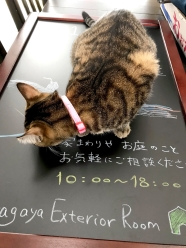 まわりや お庭のこと
お気軽にご相談くださ
10:00~18:00
agaya Exterior Room